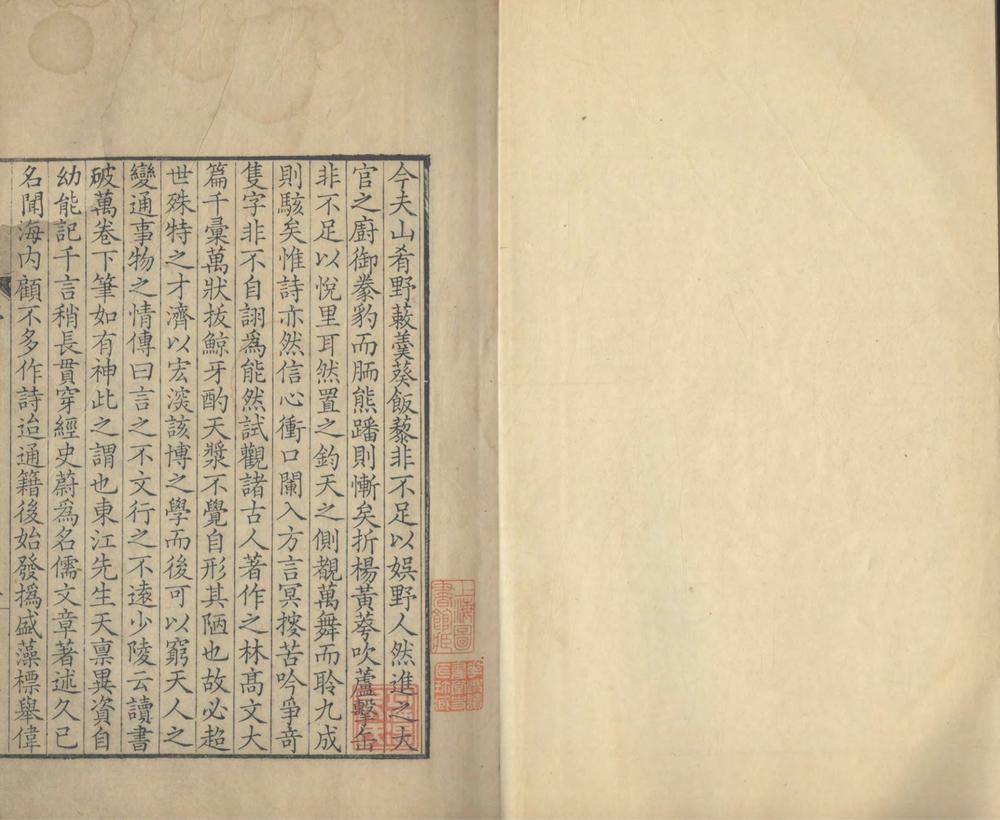 今夫山肴野蔌羹葵飯藜非不足以娛野人然進之大
官之廚御豢豹而胹熊蹯則慚矣折楊黃荂吹蘆擊缶
非不足以悅里耳然置之鈞天之側觀萬舞而聆九成
則駭矣惟詩亦然信心衝口闌入方言冥搜苦吟爭奇
隻字非不自詡爲能然試觀諸古人著作之林高文大
篇千彙萬狀拔鯨牙酌天漿不覺自形其陋也故必超
世殊特之才濟以宏深該博之學而後可以窮天人之
變通事物之情傳曰言之不文行之不遠少陵云讀書
破萬卷下筆如有神此之謂也東江先生天禀異資自
幼能記千言稍長貫穿經史蔚爲名儒文章著述久已
名聞海内顧不多作詩迨通籍後始發撝盛藻標舉偉
上海圖
書館藏